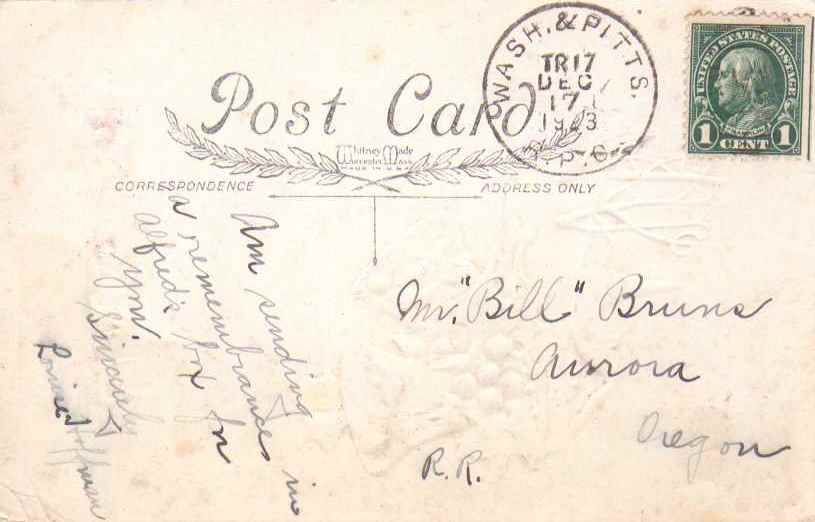 Post Card
Whitney Made
Worcester, Mass.
MADE IN U.S.A.
CORRESPONDENCE
ADDRESS ONLY
WASH. & PITTS.
TR 17
DEC
17
1923
R.P.O.
UNITED STATES POSTAGE
FRANKLIN
1 CENT 1
Am sending
a remembrance in
Alfred's box for
you.
Sincerely
Louise Hoffman
Mr. "Bill" Bruns
Aurora
Oregon
R.R.